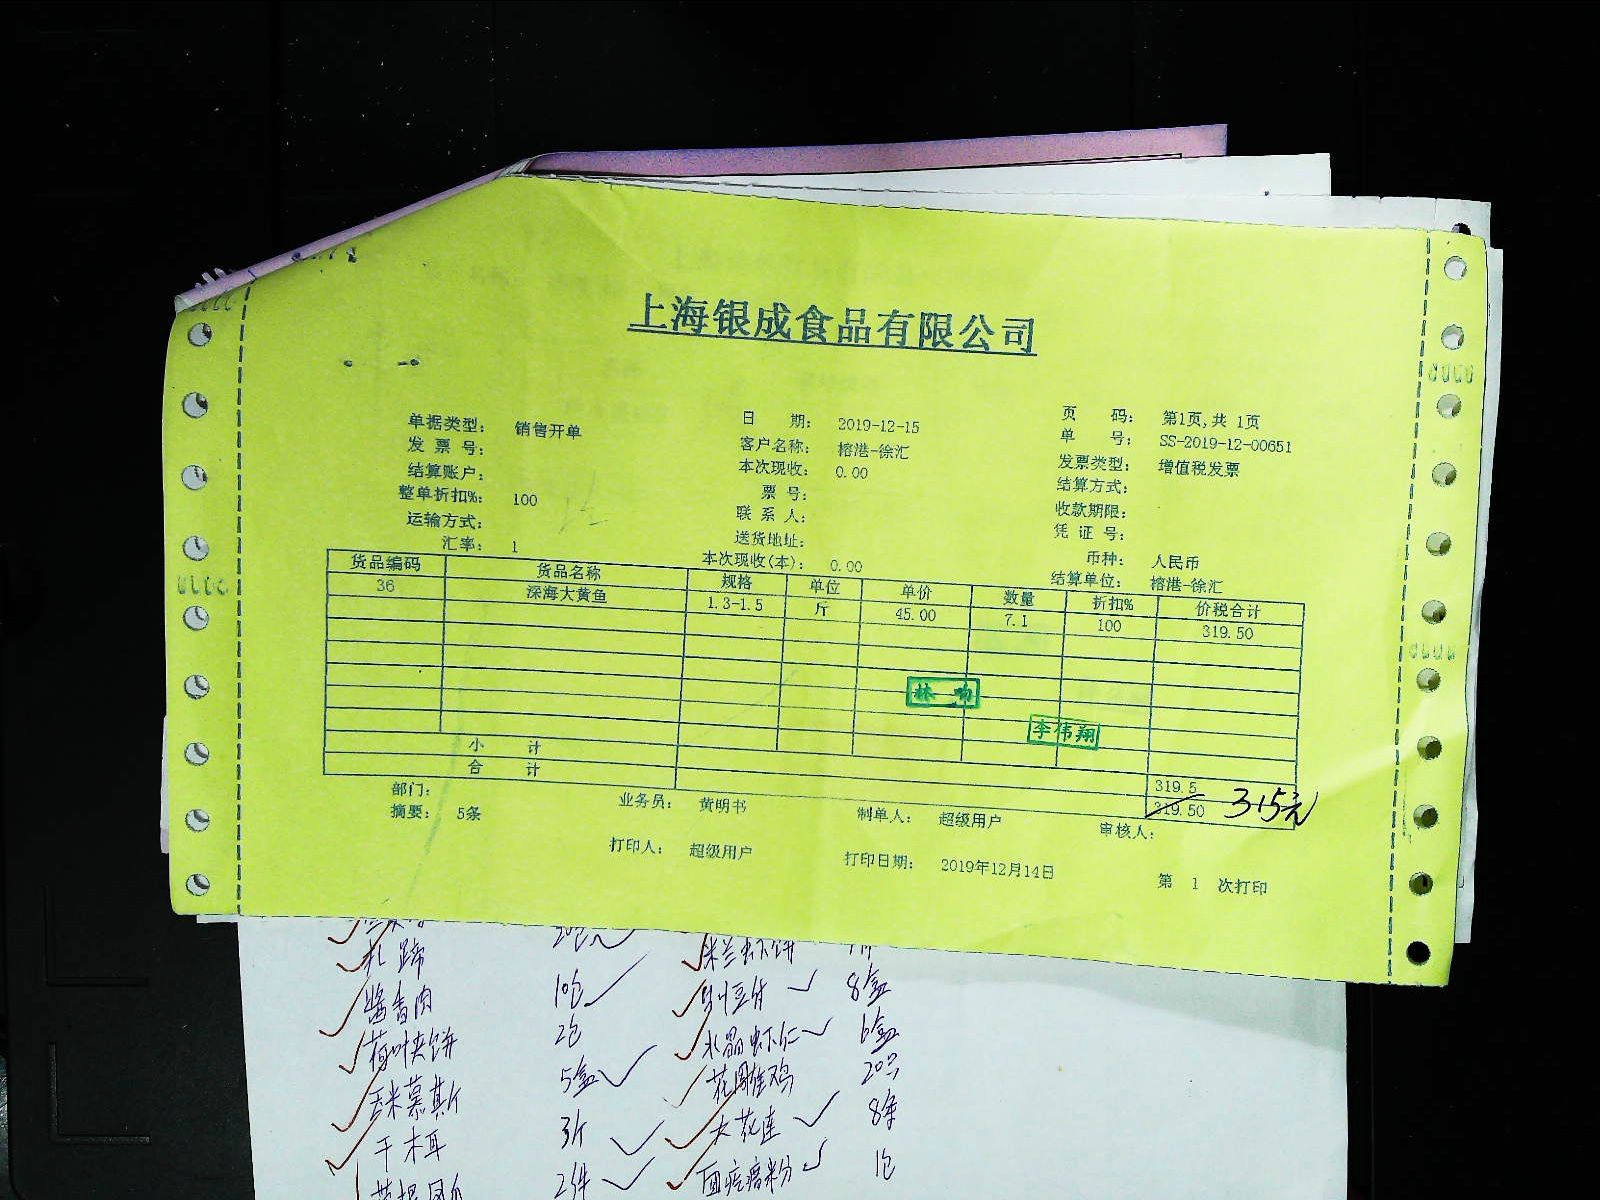 上海银成食品有限公司
单据类型： 销售开单 日 期： 2019-12-15 页 码： 第1页,共 1页
发 票 号： 客户名称： 榕港-徐汇 单 号： SS-2019-12-00651
结算账户： 本次现收： 0.00 发票类型： 增值税发票
整单折扣%： 100 票 号： 结算方式：
运输方式： 联 系 人： 收款期限：
汇率： 1 送货地址： 凭 证 号：
本次现收(本)： 0.00 币种： 人民币
结算单位： 榕港-徐汇
货品编码 货品名称 规格 单位 单价 数量 折扣% 价税合计
36 深海大黄鱼 1.3-1.5 斤 45.00 7.1 100 319.50
李伟翔
小 计 319.5
合 计 319.50 315元
部门： 业务员： 黄明书 制单人： 超级用户 审核人：
摘要： 5条
打印人： 超级用户 打印日期： 2019年12月14日 第 1 次打印
扎蹄 20包 米兰虾饼
酱香肉 10包 8盒
荷叶夹饼 2包 水晶虾仁 6盒
5盒 花雕鸡 20只
干木耳 3斤 大花莲 8条
2件 面疙瘩粉 1包